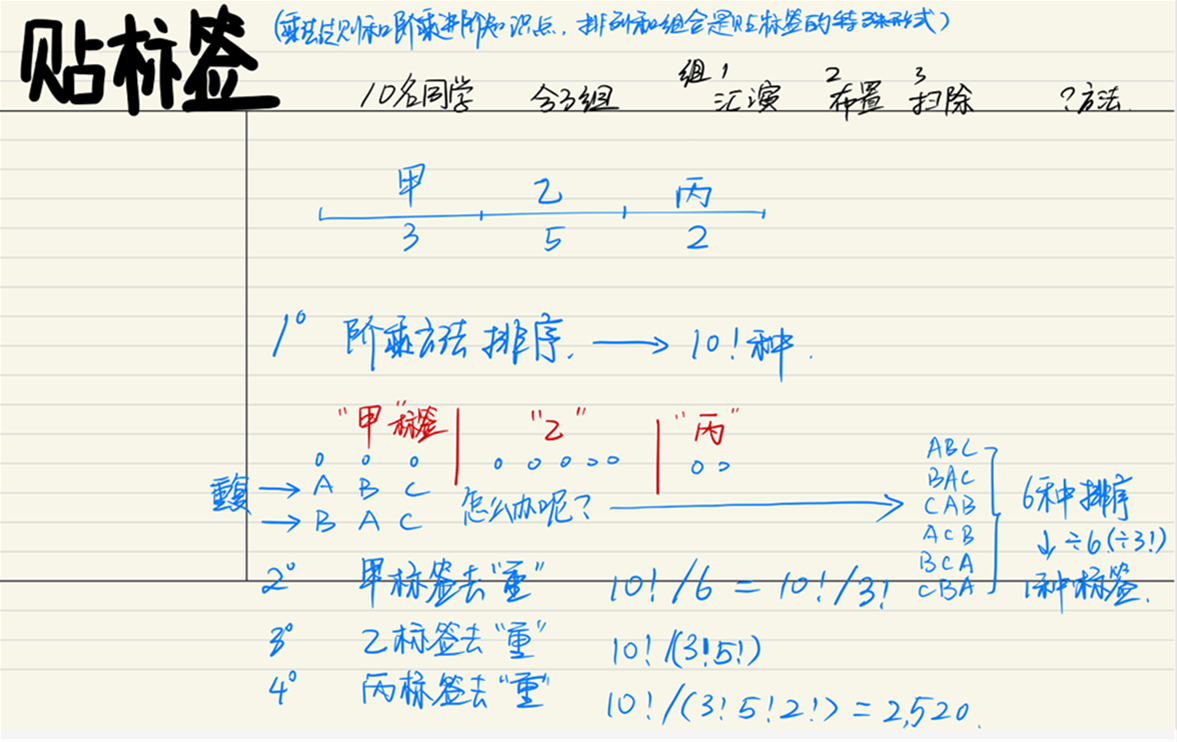 贴标签 (乘法法则和阶乘进阶知识点，排列和组合是贴标签的特殊形式)
10名同学 分3组 组1汇演 2布置 3扫除 ?方法.
甲 乙 丙
3 5 2
1° 阶乘方法排序. → 10!种.
"甲"标签 "乙" "丙"
重复 → A B C
→ B A C 怎么办呢? →
ABC
BAC
CAB
ACB
BCA
CBA
6种排序
↓÷6(÷3!)
1种标签.
2° 甲标签去"重" 10!/6 = 10!/3!
3° 乙标签去"重" 10!/(3!5!)
4° 丙标签去"重" 10!/(3!5!2!) = 2,520.